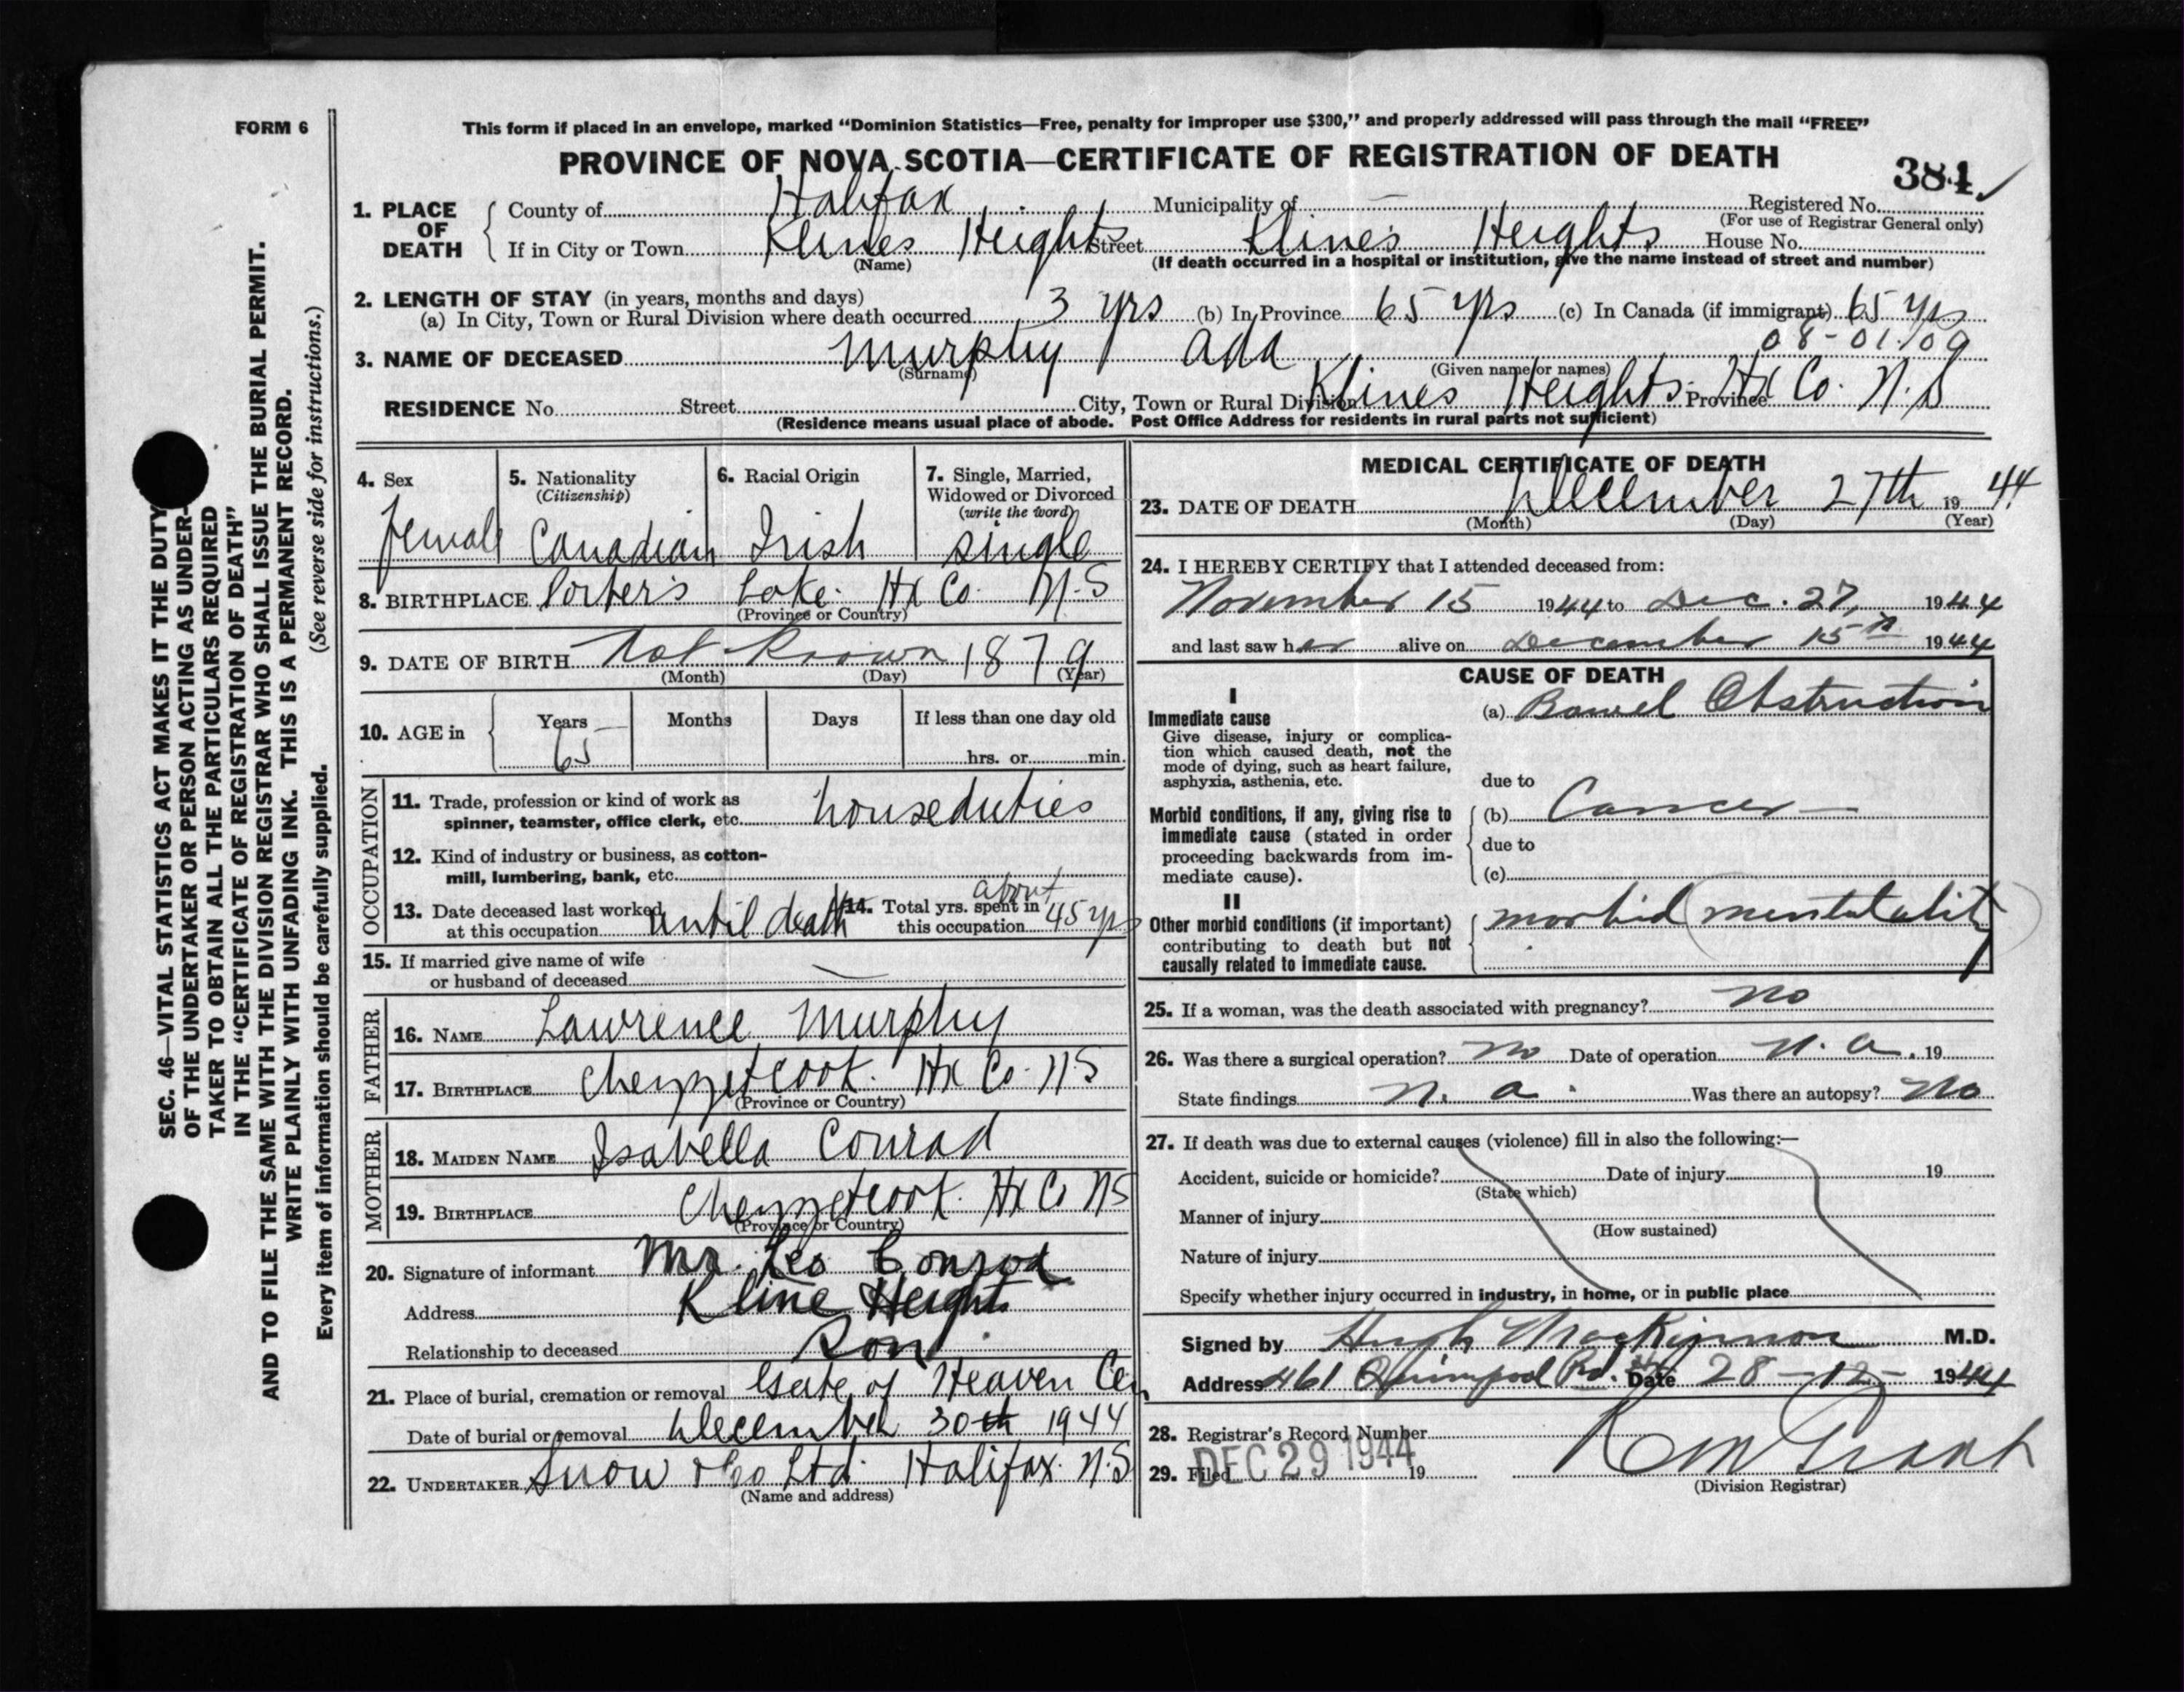 FORM 6
This form if placed in an envelope, marked “Dominion Statistics—Free, penalty for improper use $300,” and properly addressed will pass through the mail “FREE”
PROVINCE OF NOVA SCOTIA—CERTIFICATE OF REGISTRATION OF DEATH
384
1. PLACE OF DEATH
County of Halifax Municipality of — Registered No.
(For use of Registrar General only)
If in City or Town Klines Heights Street Kline's Heights House No.
(Name) (If death occurred in a hospital or institution, give the name instead of street and number)
2. LENGTH OF STAY (in years, months and days)
(a) In City, Town or Rural Division where death occurred 3 yrs (b) In Province 65 yrs (c) In Canada (if immigrant) 65 yrs
08-01.109
3. NAME OF DECEASED Murphy Ada
(Surname) (Given name or names)
RESIDENCE No. Street City, Town or Rural Division Klines Heights Province Hx Co. N.S
(Residence means usual place of abode. Post Office Address for residents in rural parts not sufficient)
4. Sex female
5. Nationality (Citizenship) Canadian
6. Racial Origin Irish
7. Single, Married, Widowed or Divorced (write the word) single
8. BIRTHPLACE Porter's Lake Hx Co. N.S
(Province or Country)
9. DATE OF BIRTH Not Known 1879
(Month) (Day) (Year)
10. AGE in Years 65 Months Days If less than one day old
hrs. or min.
OCCUPATION
11. Trade, profession or kind of work as
spinner, teamster, office clerk, etc. houseduties
12. Kind of industry or business, as cotton-
mill, lumbering, bank, etc.
13. Date deceased last worked
at this occupation until death
14. Total yrs. spent in
this occupation about 45 yrs
15. If married give name of wife
or husband of deceased —
FATHER
16. NAME Lawrence Murphy
17. BIRTHPLACE Chezzetcook. Hx Co. N.S
(Province or Country)
MOTHER
18. MAIDEN NAME Isabella Conrad
19. BIRTHPLACE Chezzetcook. Hx Co NS
(Province or Country)
20. Signature of informant Mr. Leo Conrod
Address Kline Heights
Relationship to deceased Son
21. Place of burial, cremation or removal Gate of Heaven Cem
Date of burial or removal December 30th 1944
22. UNDERTAKER Snow & Co Ltd. Halifax. N.S
(Name and address)
MEDICAL CERTIFICATE OF DEATH
23. DATE OF DEATH December 27th 1944.
(Month) (Day) (Year)
24. I HEREBY CERTIFY that I attended deceased from:
November 15 1944 to Dec. 27, 1944
and last saw her alive on December 15th 1944
CAUSE OF DEATH
I
Immediate cause
Give disease, injury or complica-
tion which caused death, not the
mode of dying, such as heart failure,
asphyxia, asthenia, etc.
(a) Bowel Obstruction
due to
Morbid conditions, if any, giving rise to
immediate cause (stated in order
proceeding backwards from im-
mediate cause).
(b) Cancer —
due to
(c)
II
Other morbid conditions (if important)
contributing to death but not
causally related to immediate cause.
morbid (mentatality)
25. If a woman, was the death associated with pregnancy? no
26. Was there a surgical operation? no Date of operation n.a. 19
State findings n. a. Was there an autopsy? No
27. If death was due to external causes (violence) fill in also the following:—
Accident, suicide or homicide? Date of injury 19
(State which)
Manner of injury
(How sustained)
Nature of injury
Specify whether injury occurred in industry, in home, or in public place
Signed by Hugh MacKinnon M.D.
Address 461 Quinpool Rd. Date 28-12- 1944
28. Registrar's Record Number
29. Filed DEC 29 1944 19
(Division Registrar)
SEC. 46—VITAL STATISTICS ACT MAKES IT THE DUTY
OF THE UNDERTAKER OR PERSON ACTING AS UNDER-
TAKER TO OBTAIN ALL THE PARTICULARS REQUIRED
IN THE “CERTIFICATE OF REGISTRATION OF DEATH”
AND TO FILE THE SAME WITH THE DIVISION REGISTRAR WHO SHALL ISSUE THE BURIAL PERMIT.
WRITE PLAINLY WITH UNFADING INK. THIS IS A PERMANENT RECORD.
Every item of information should be carefully supplied. (See reverse side for instructions.)